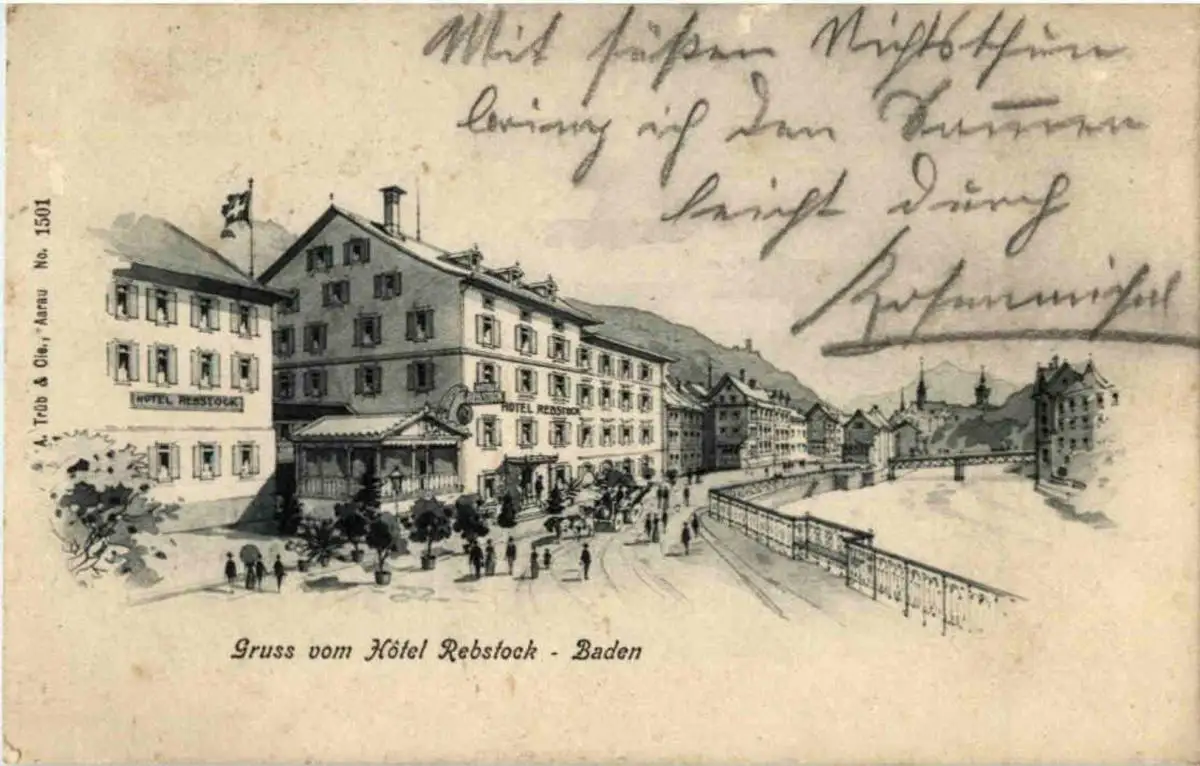 Mit süßen Nichtsthun
bring ich den Sommer
leicht durch
A. Trüb & Cie., Aarau No. 1501
HOTEL REBSTOCK
HOTEL REBSTOCK
Gruss vom Hôtel Rebstock - Baden